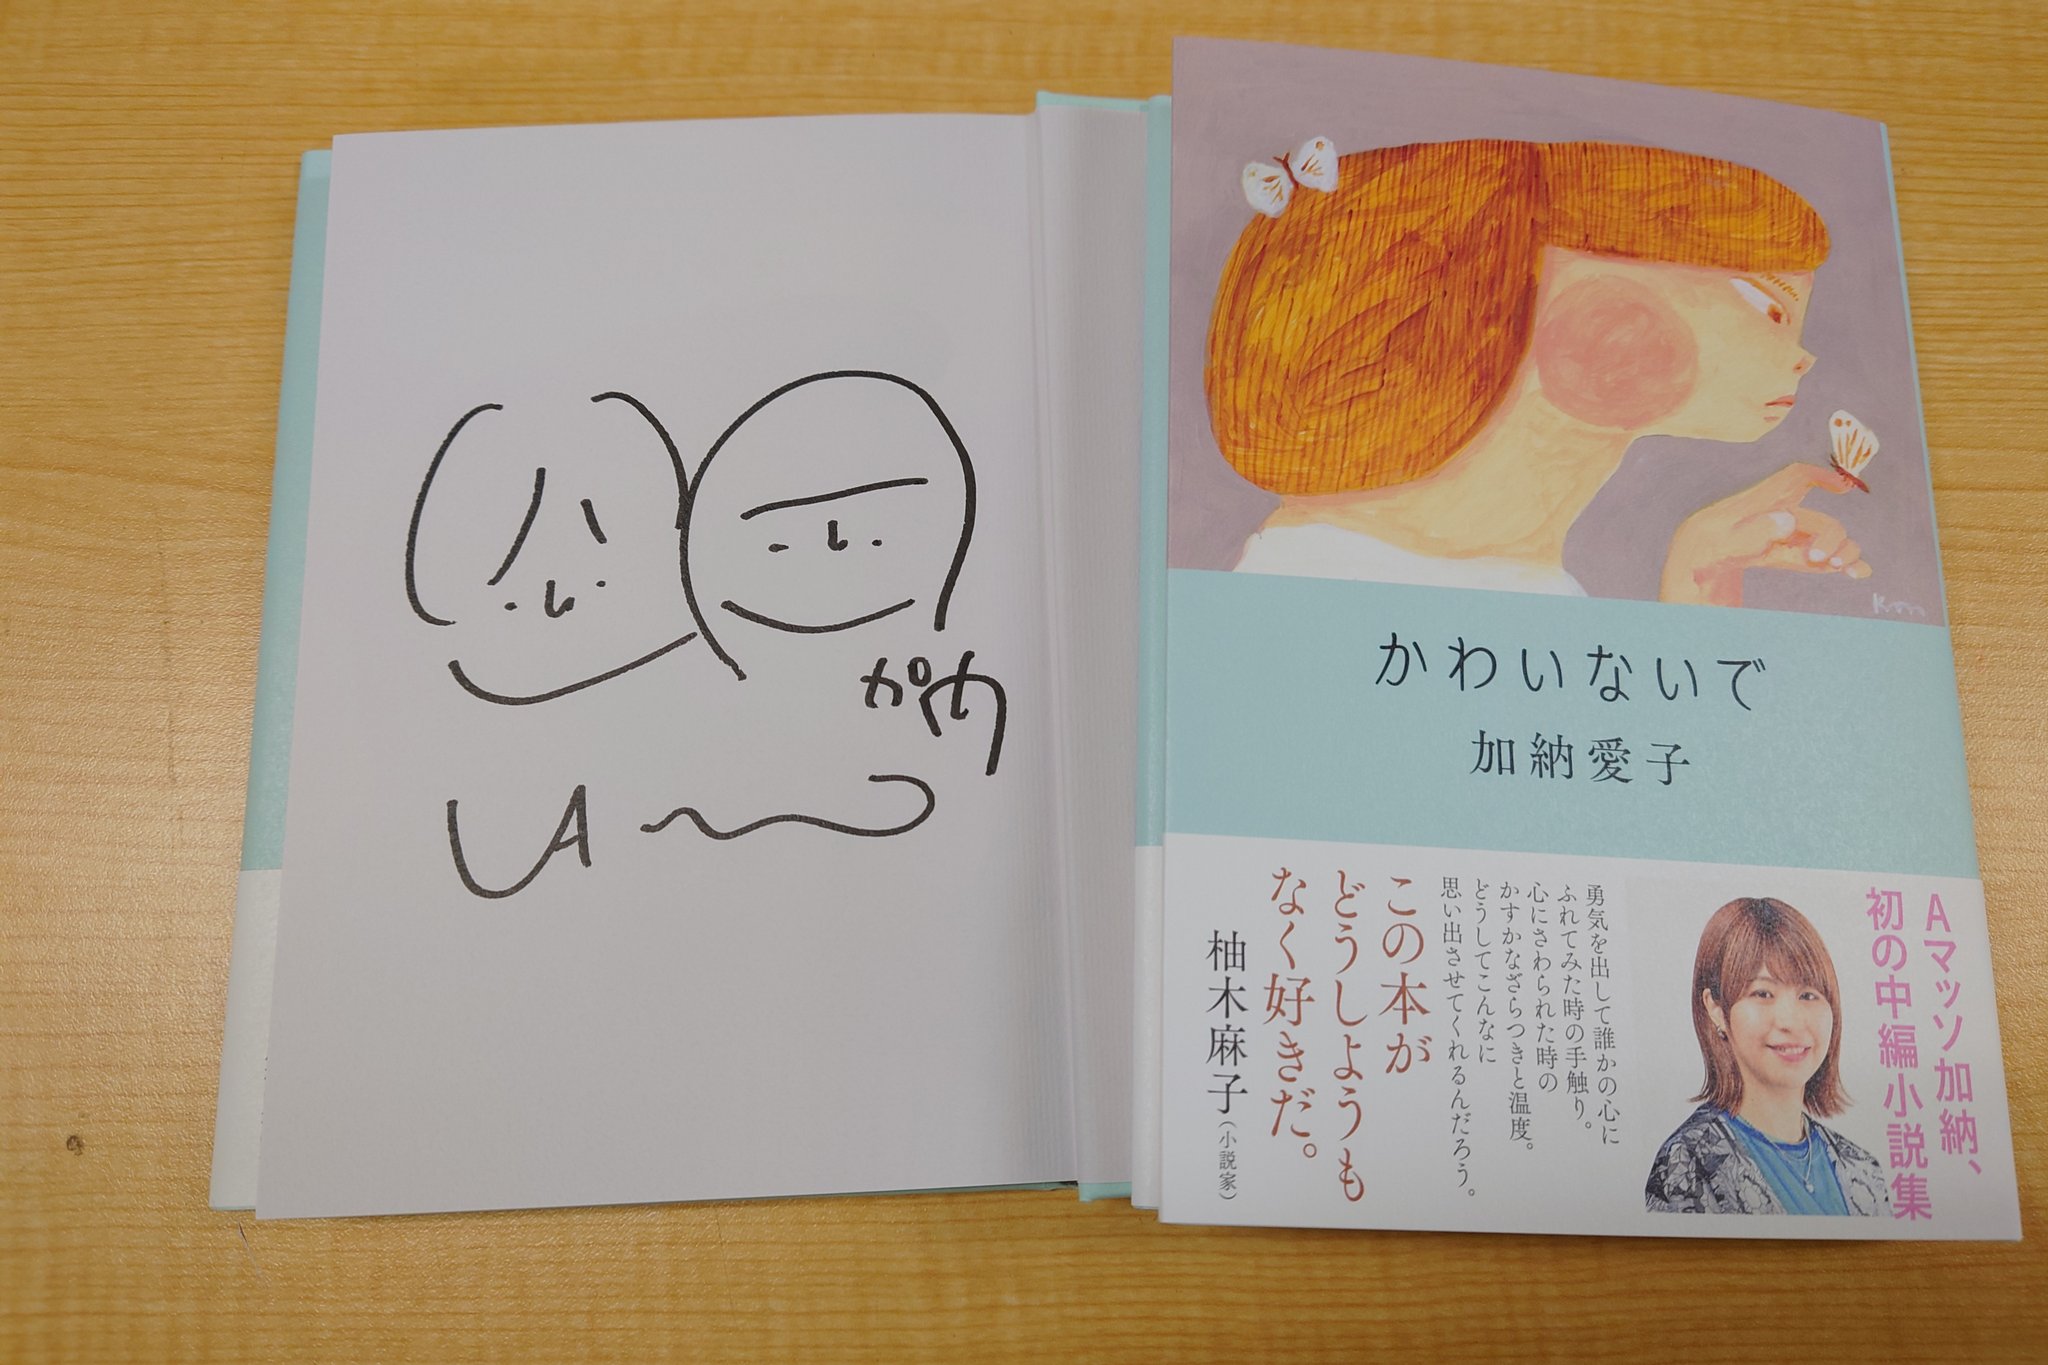 かわいないで
加納愛子
Aマッソ加納、
初の中編小説集
勇気を出して誰かの心に
ふれてみた時の手触り。
心にさわられた時の
かすかなざらつきと温度。
どうしてこんなに
思い出させてくれるんだろう。
この本が
どうしようも
なく好きだ。
柚木麻子（小説家）